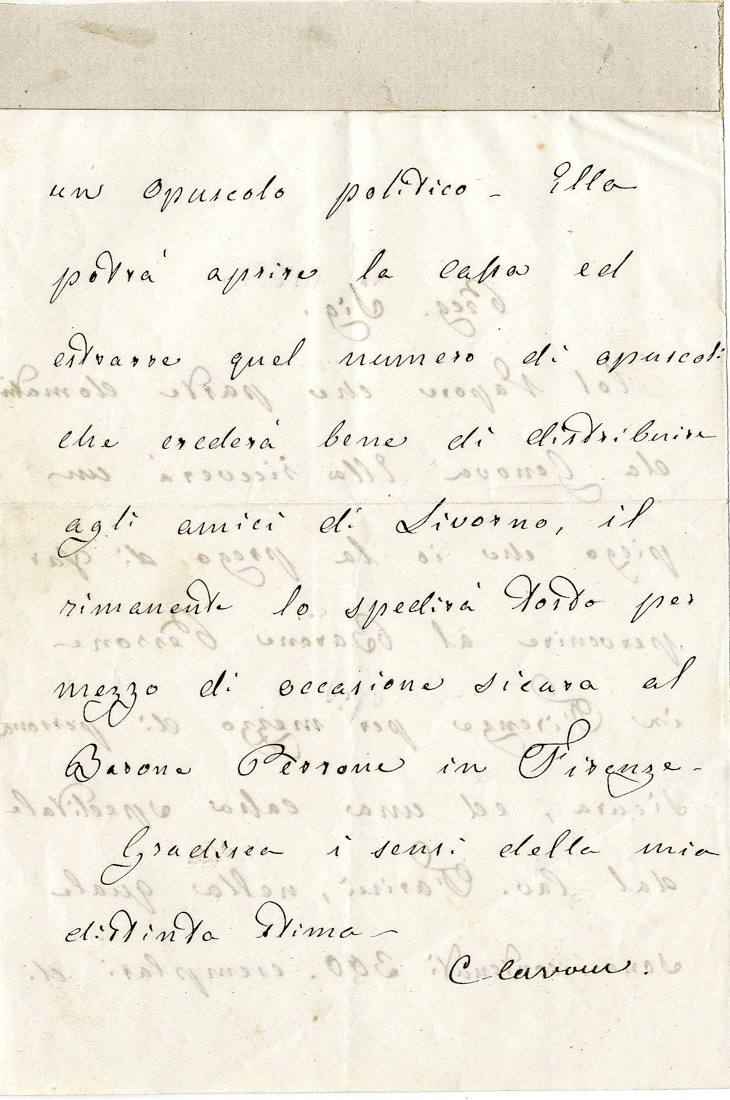 un opuscolo politico - Ella
potrà aprire la cassa ed
estrarre quel numero di opuscoli
che crederà bene di distribuire
agli amici di Livorno, il
rimanente lo spedirà tosto per
mezzo di occasione sicura al
Barone Perrone in Firenze-
Gradisca i sensi della mia
distinta stima-
C Cavour.